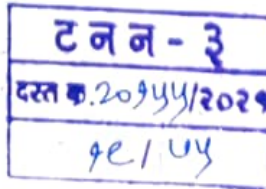 ट न न - ३
दस्त क्र. २०१५५/२०२१
१८/५५